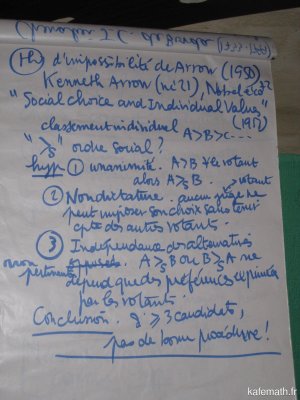 J.C. de Borda (1733
(Th) d'impossibilité de Arrow (1950)
Kenneth Arrow (né 21), Nobel éco 72
"Social choice and Individual Values"
(1951)
classement individuel A>B>C---
">s" ordre social?
hyp ① unanimité. A>B ∀ les votant
alors A>s B.
② Non dictature. aucun votant ne
peut imposer son choix sans tenir
cpte des autres votants.
③ Indépendance des alternatives
non pertinentes. A>s B ou B>s A ne
dépend que des préférences exprimées
par les votants.
Conclusion. si ≥3 candidats,
pas de bonne procédure!
kafemath.fr